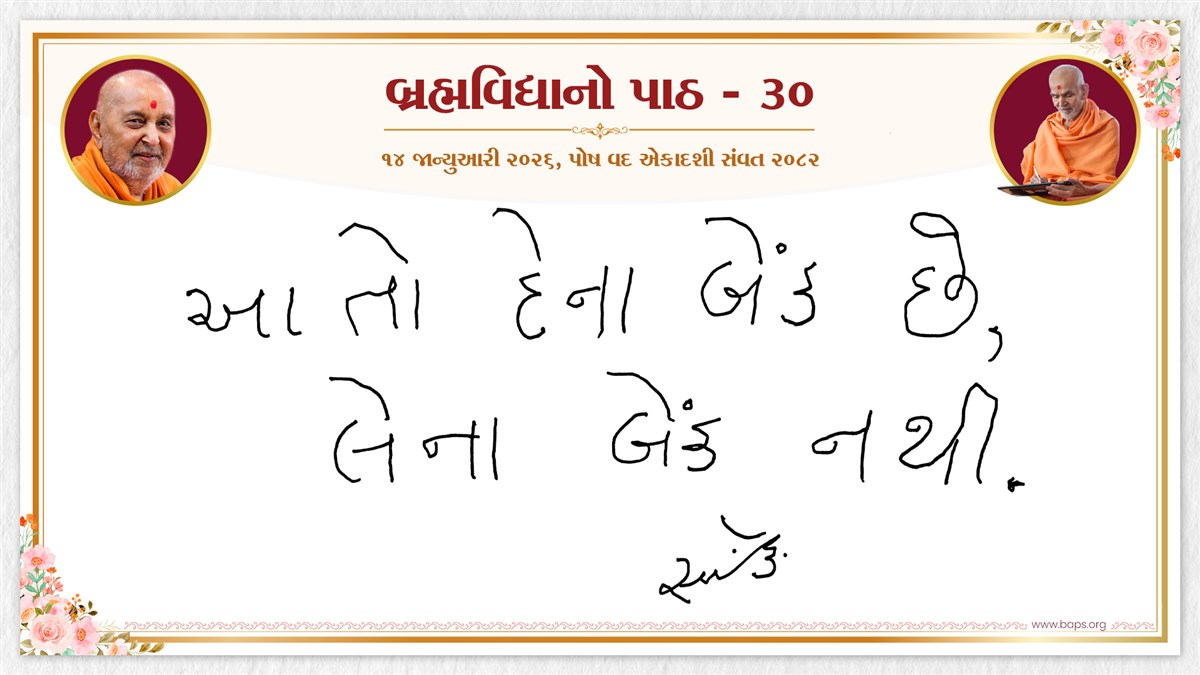 બ્રહ્મવિદ્યાનો પાઠ - ૩૦
૧૪ જાન્યુઆરી ૨૦૨૬, પોષ વદ એકાદશી સંવત ૨૦૮૨
આ તો દેના બેંક છે,
લેના બેંક નથી.
www.baps.org